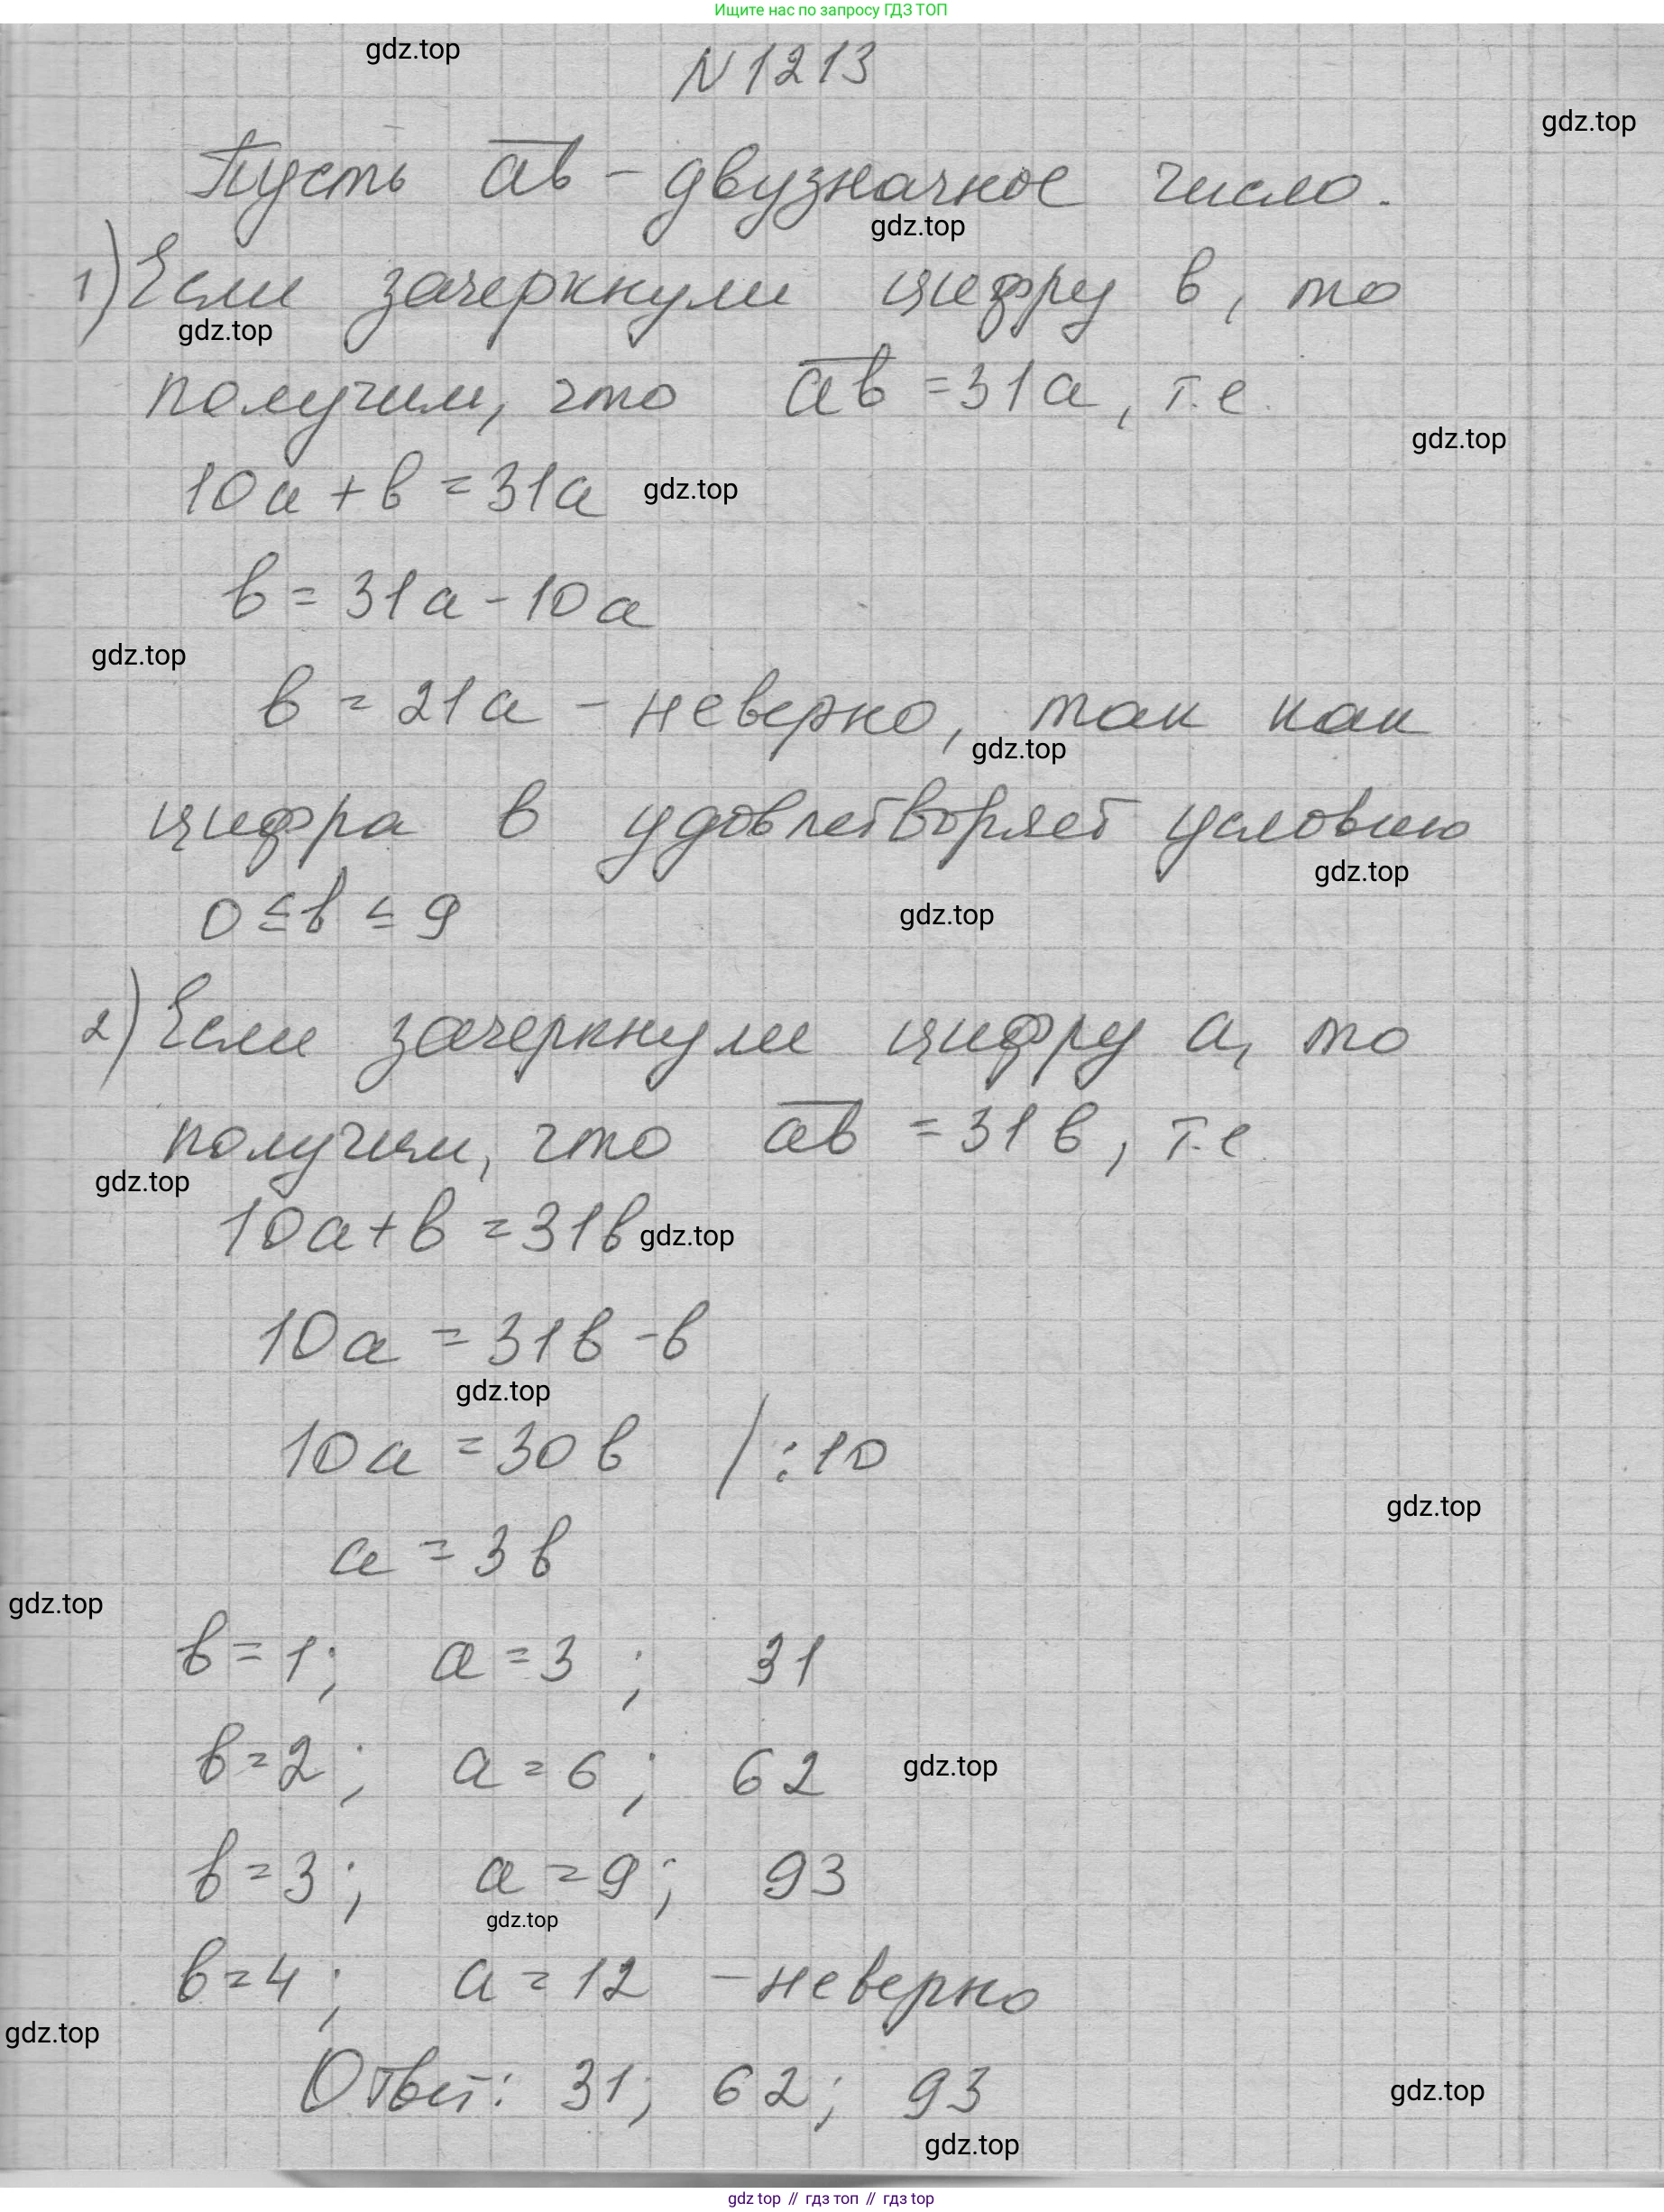 Ищите нас по запросу ГДЗ ТОП
gdz.top
N 1213
gdz.top
Пусть ab – двузначное число.
gdz.top
1) Если зачеркнули цифру b, то
gdz.top
получим, что ab = 31a, т.е.
gdz.top
10a + b = 31a
gdz.top
b = 31a - 10a
gdz.top
b = 21a – неверно, так как
gdz.top
цифра b удовлетворяет условию
gdz.top
0 ≤ b ≤ 9
gdz.top
2) Если зачеркнули цифру a, то
получим, что ab = 31b, т.е.
gdz.top
10a + b = 31b
gdz.top
10a = 31b - b
gdz.top
10a = 30b /:10
gdz.top
a = 3b
gdz.top
b = 1; a = 3; 31
b = 2; a = 6; 62
gdz.top
b = 3; a = 9; 93
gdz.top
b = 4; a = 12 – неверно
gdz.top
Ответ: 31; 62; 93
gdz.top
gdz.top
gdz top // гдз топ // gdz top